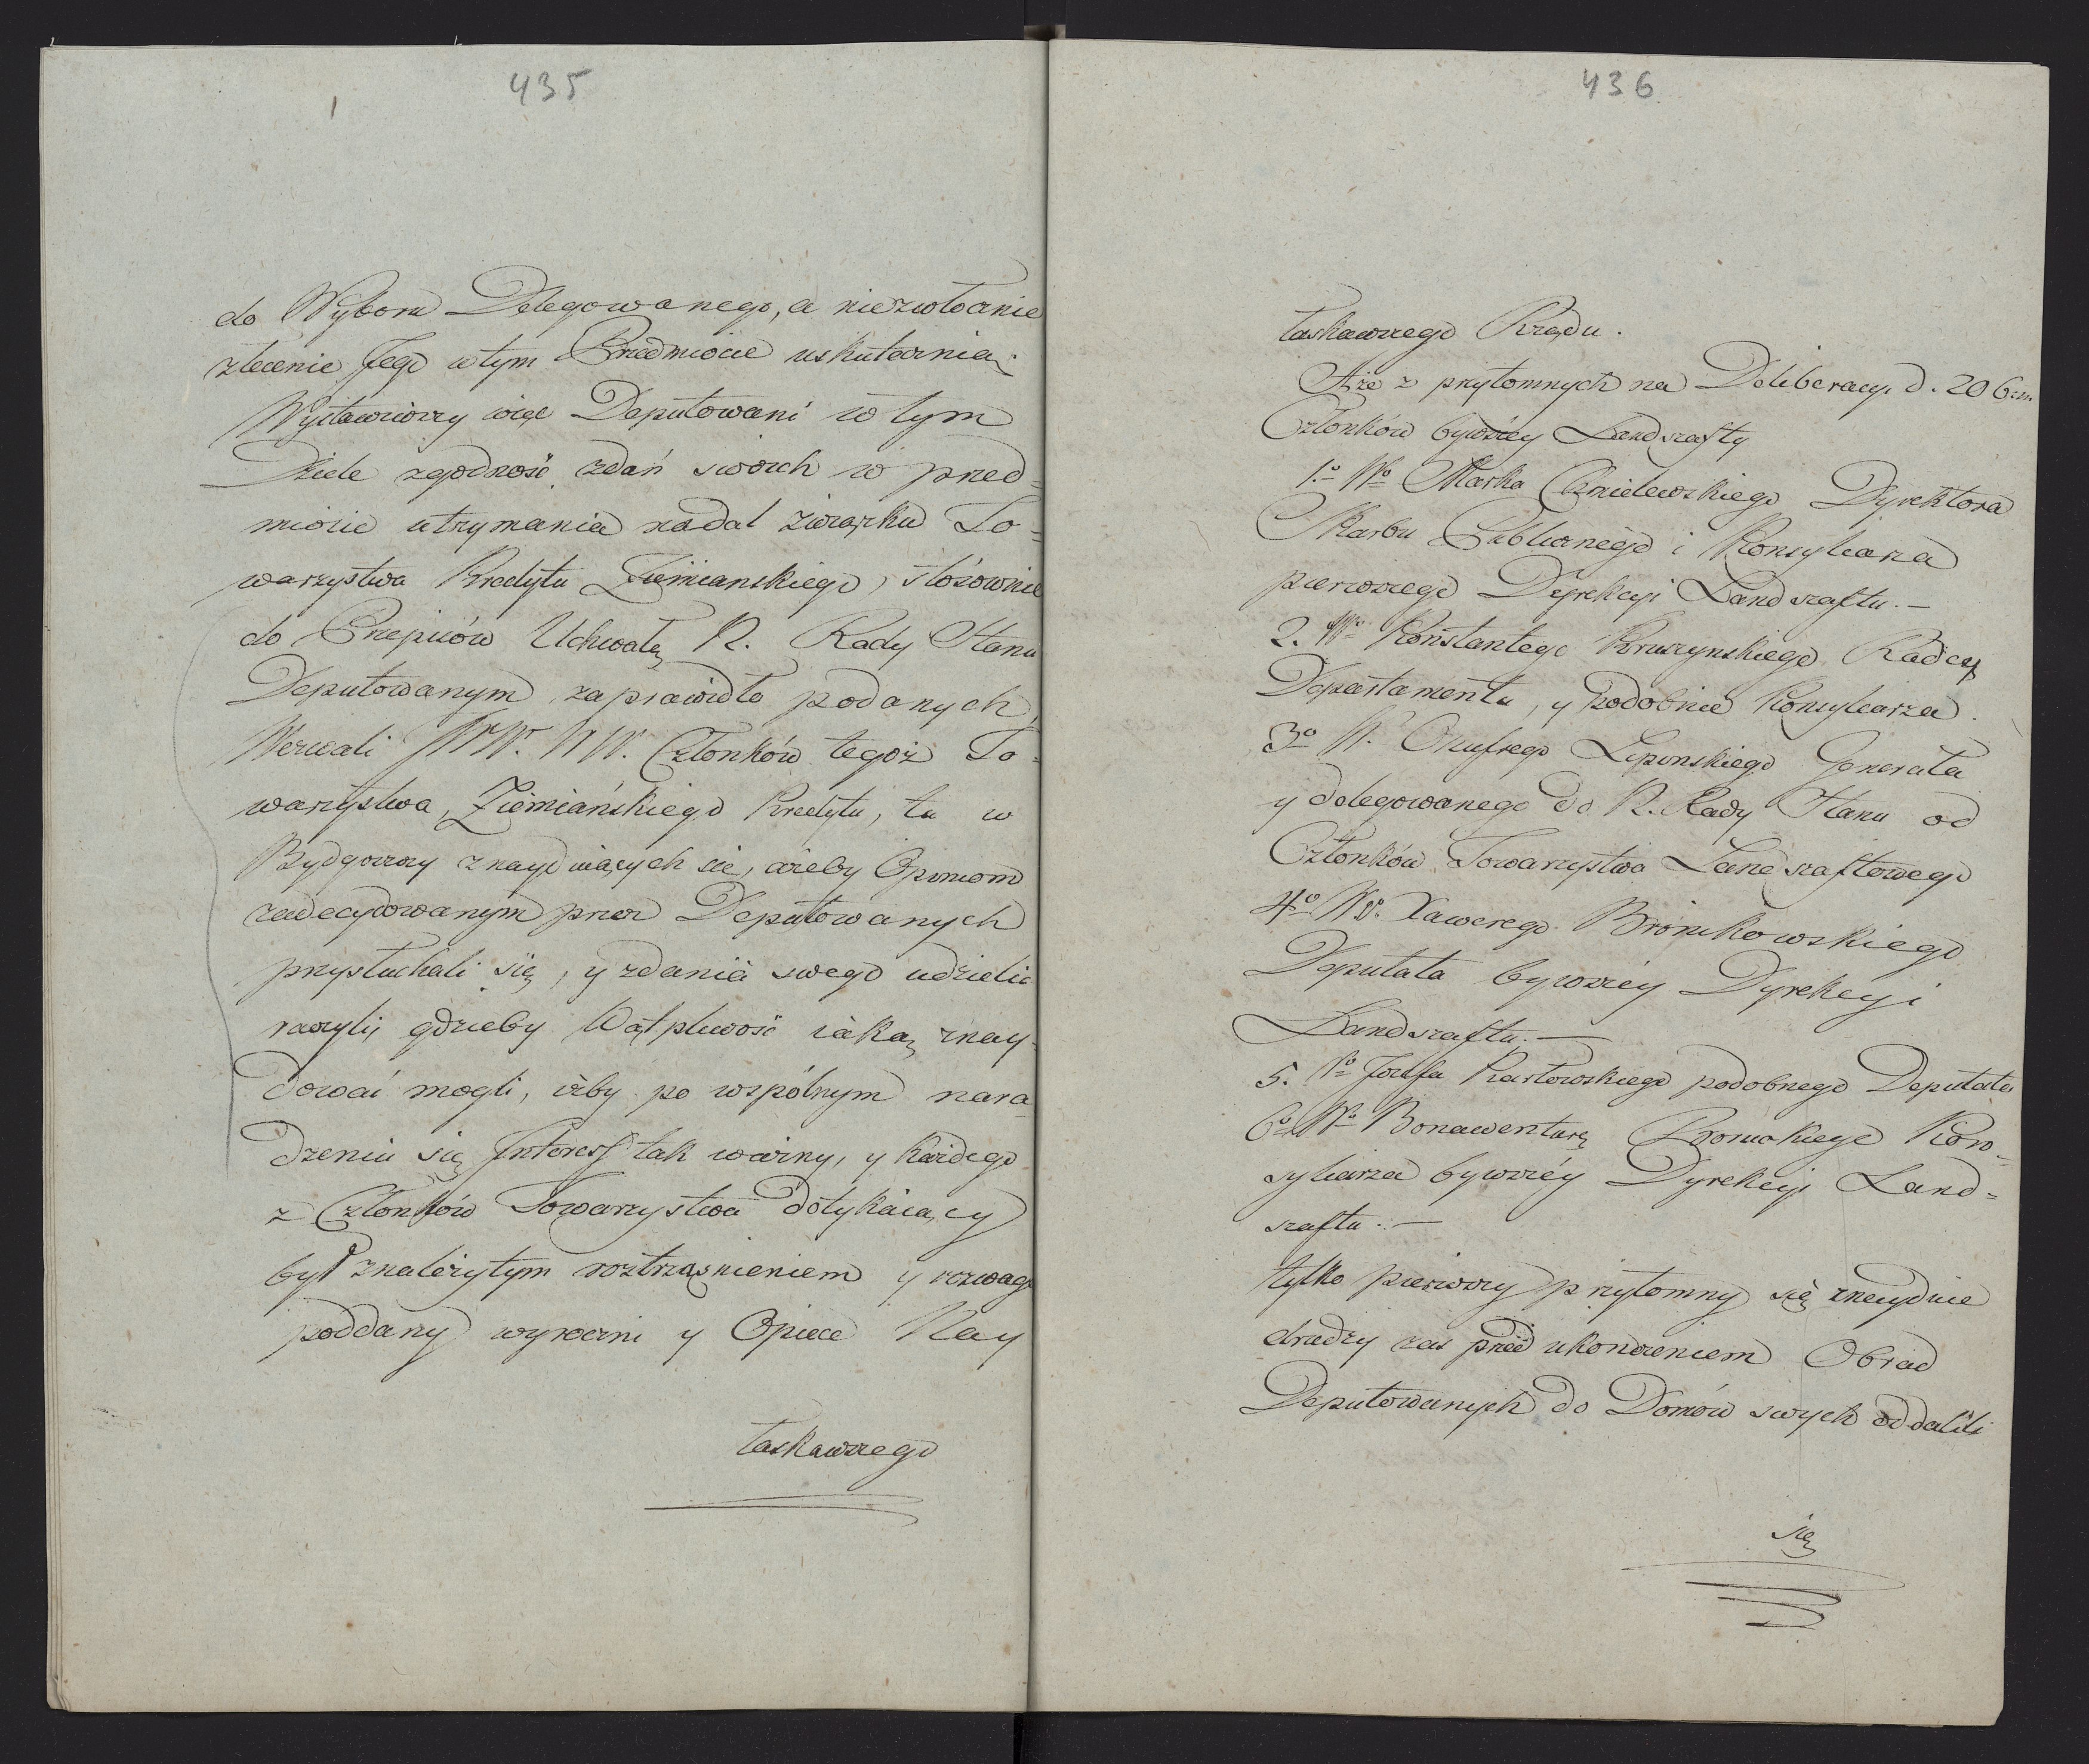 435
do Wyboru Delegowanego, a niezwłocznie
zlecenie Jego w tym Przedmiocie uskutecznią.
Wystawiwszy więc Deputowani w tym
Dziele zgodność zdań swoich w przed=
miocie utrzymania nadal związku To=
warzystwa Kredytu Ziemianskiego, stósownie
do Przepisów Uchwałą R. Rady Stanu
Deputowanym za prawidło podanych,
Wezwali JWW. WW. Członków tegoż To=
warzystwa, Ziemiańskiego Kredytu, tu w
Bydgoszczy znayduiących się, ażeby Opiniom
zadecydowanym przez Deputowanych
przysłuchali się, y zdania swego udzielić
raczyli, gdzieby Wątpliwość iaką znay=
dować mogli, iżby po wspólnym nara
dzeniu się Interess tak ważny, y każdego
z Członków Towarzystwa dotykaiący
był z należytym roztrząsnieniem y rozwagą
poddany wyroczni y Opiece Nay
łaskawszego
436
łaskawszego Rządu.
A że z przytomnych na Deliberacyi d. 20 6.
Członków bywszey Landszafty
1.o Wo Marka Chmielewskiego Dyrektora
Skarbu Publicznego i Konsyliarza
pierwszego Dyrekcyi Landszaftu. —
2. Wo Konstantego Kruszynskiego Radcy
Departamentu, y podobnie Konsyliarza.
3o W. Onufrego Lipinskiego Generała
y delegowanego do R. Rady Stanu od
Członków Towarzystwa Landszaftowego
4o W. Xawerego Bronikowskiego
Deputata bywszey Dyrekcyi
Landszaftu. —
5. Jozefa Karłowskiego podobnego Deputata
6o Wo Bonawenturę Kon=
syliarza bywszéy Dyrekcyi Land=
szaftu. —
tylko pierwszy przytomny się znayduie
drudzy zas przed ukonczeniem Obrad
Deputowanych do Domów swych oddalili
się